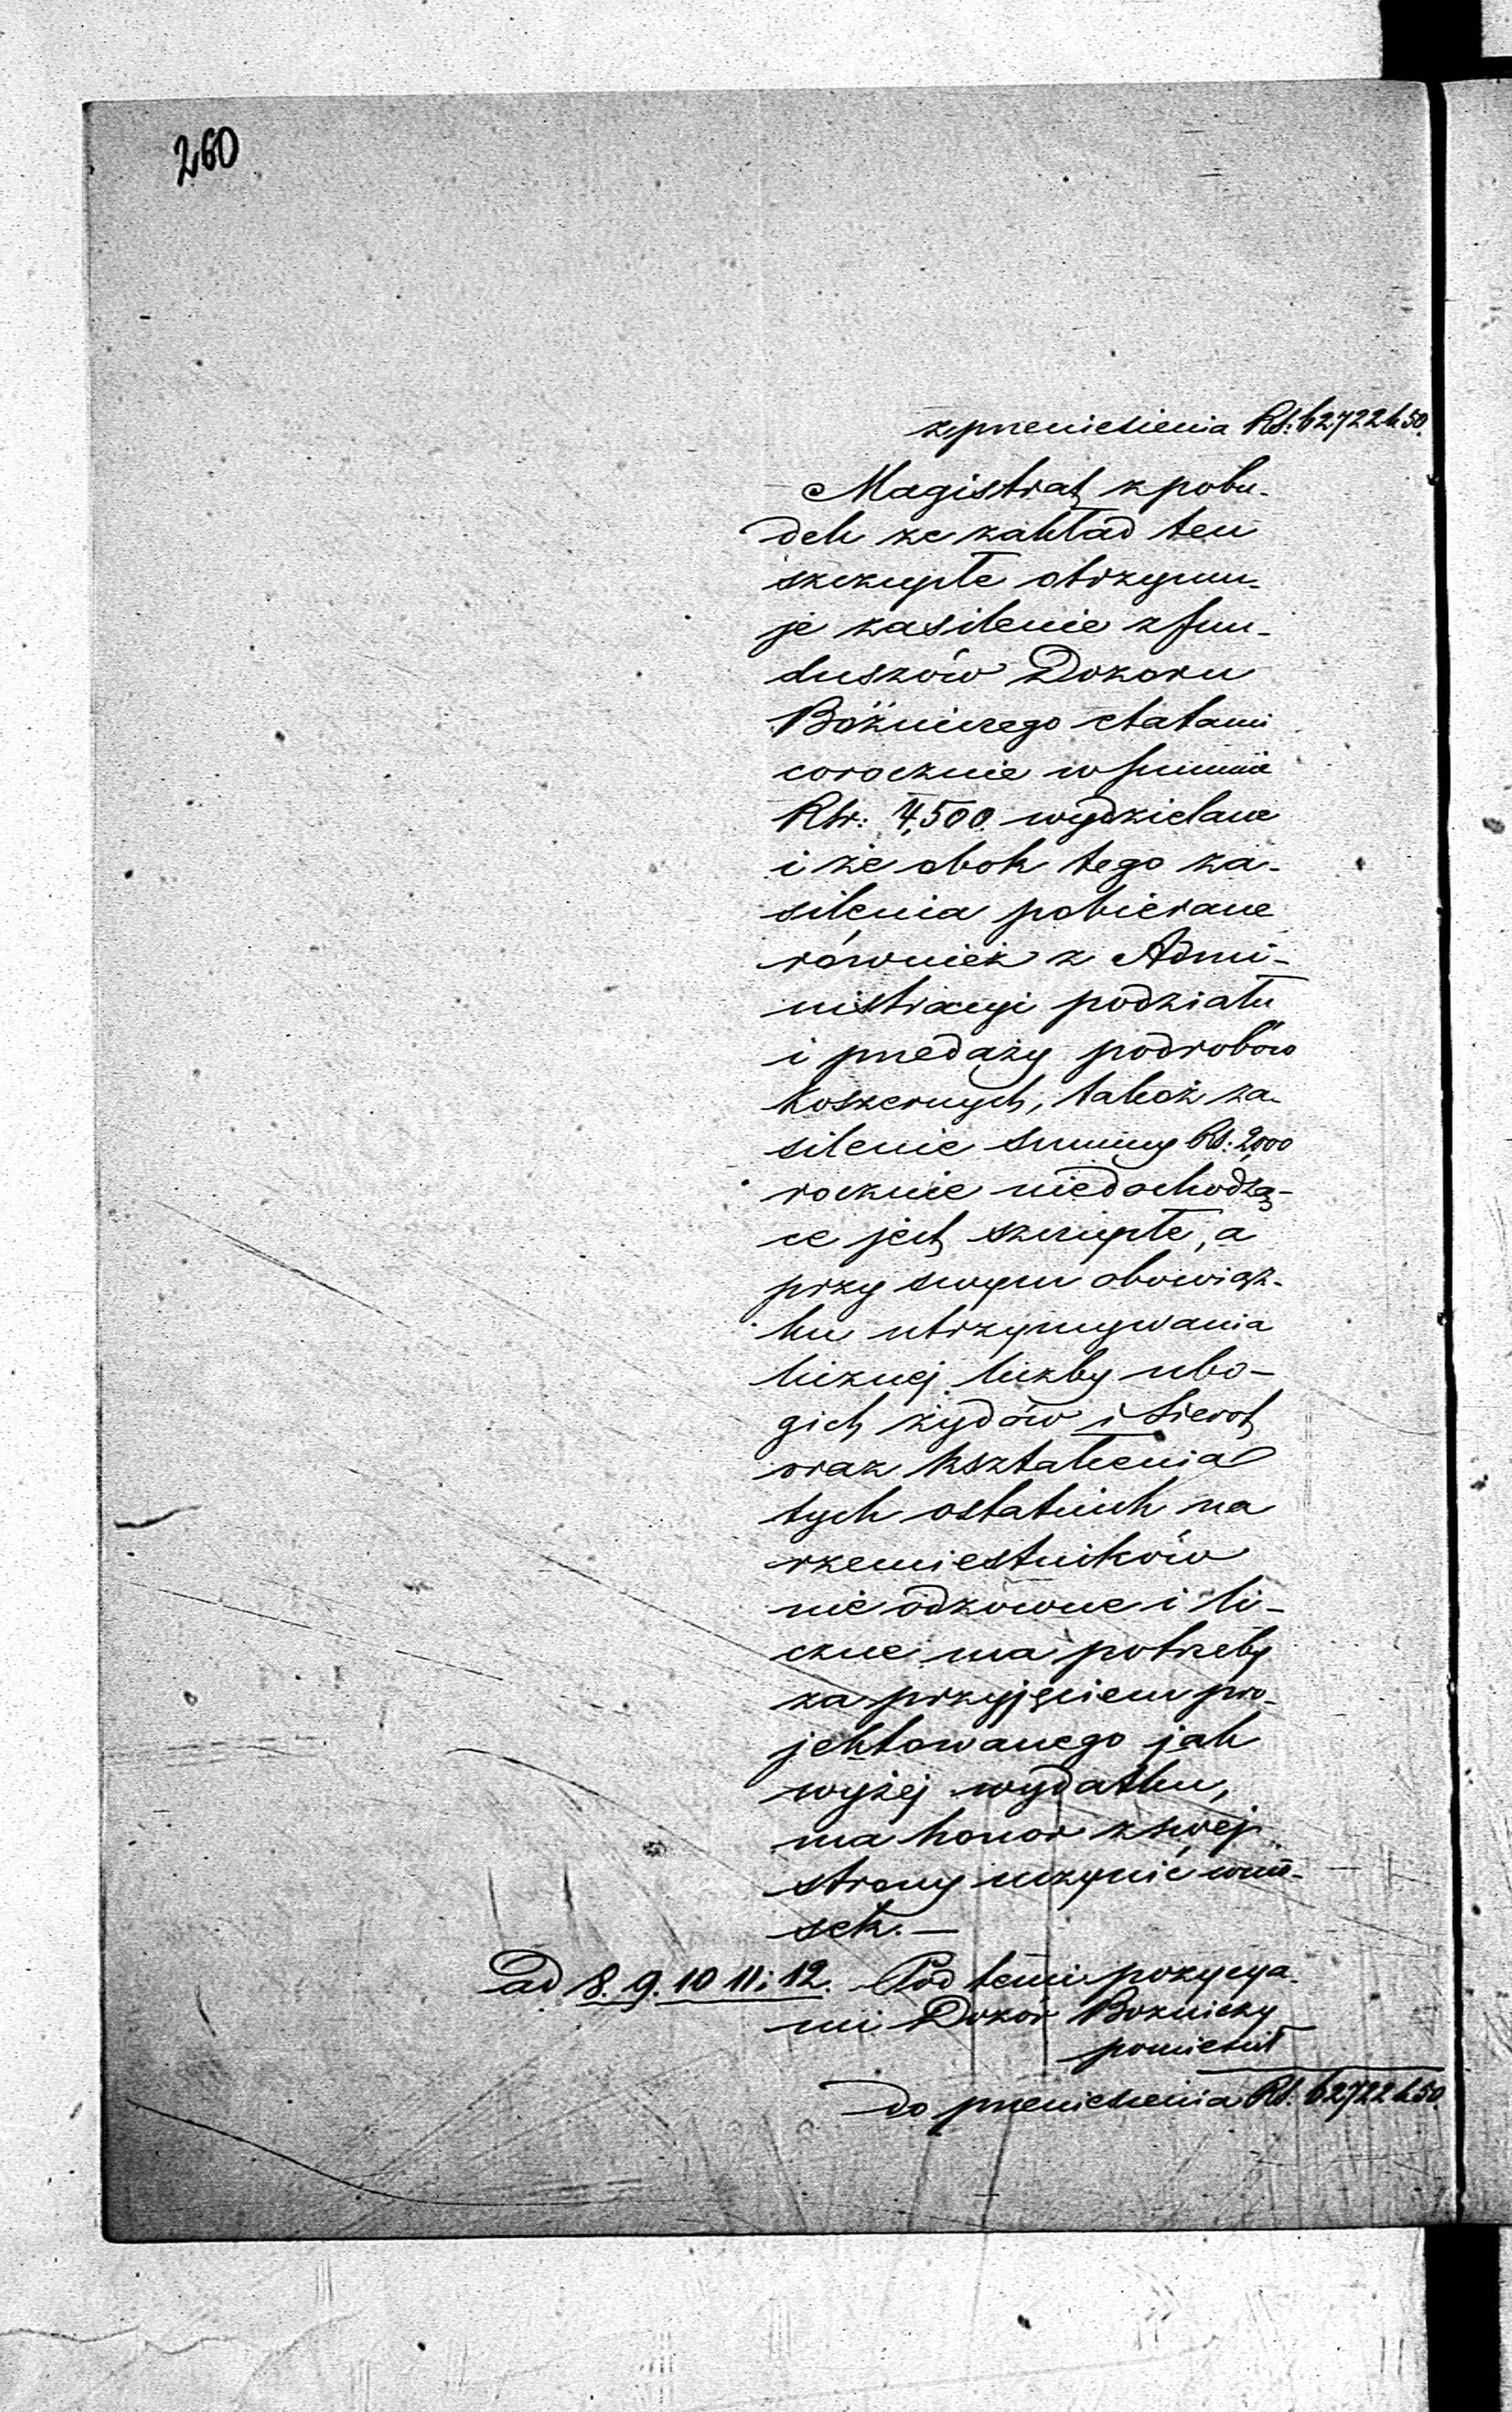 260
z przeniesienia Rs: 62722 k 50.
Magistrat z pobu-
dek że zakład ten
szczupłe otrzymu-
je zasilenie z fun-
duszów Dozoru
Bóżniczego etatami
corocznie w summie
Rsr: 4,500. wydzielane
i że obok tego za-
silenia pobierane
również z Admi-
nistracyi podziału
i przedaży podrobów
koszernych, takoż za-
silenie summy Rs. 2,000
rocznie niedochodzą-
ce jest szczupłe, a
przy swym obowiąz-
ku utrzymywania
licznej liczby ubo-
gich żydów i sierot
oraz kształcenia
tych ostatnich na
rzemieslników
nieodzowne i li-
czne ma potrzeby
za przyjęciem pro-
jektowanego jak
wyżej wydatku,
ma honor z swej
strony uczynić wnio-
sek. —
Ad 8. 9. 10 11 i 12. Pod temi pozycya-
mi Dozór Bozniczy
pomieścił
do przeniesienia Rs. 62722 k 50.